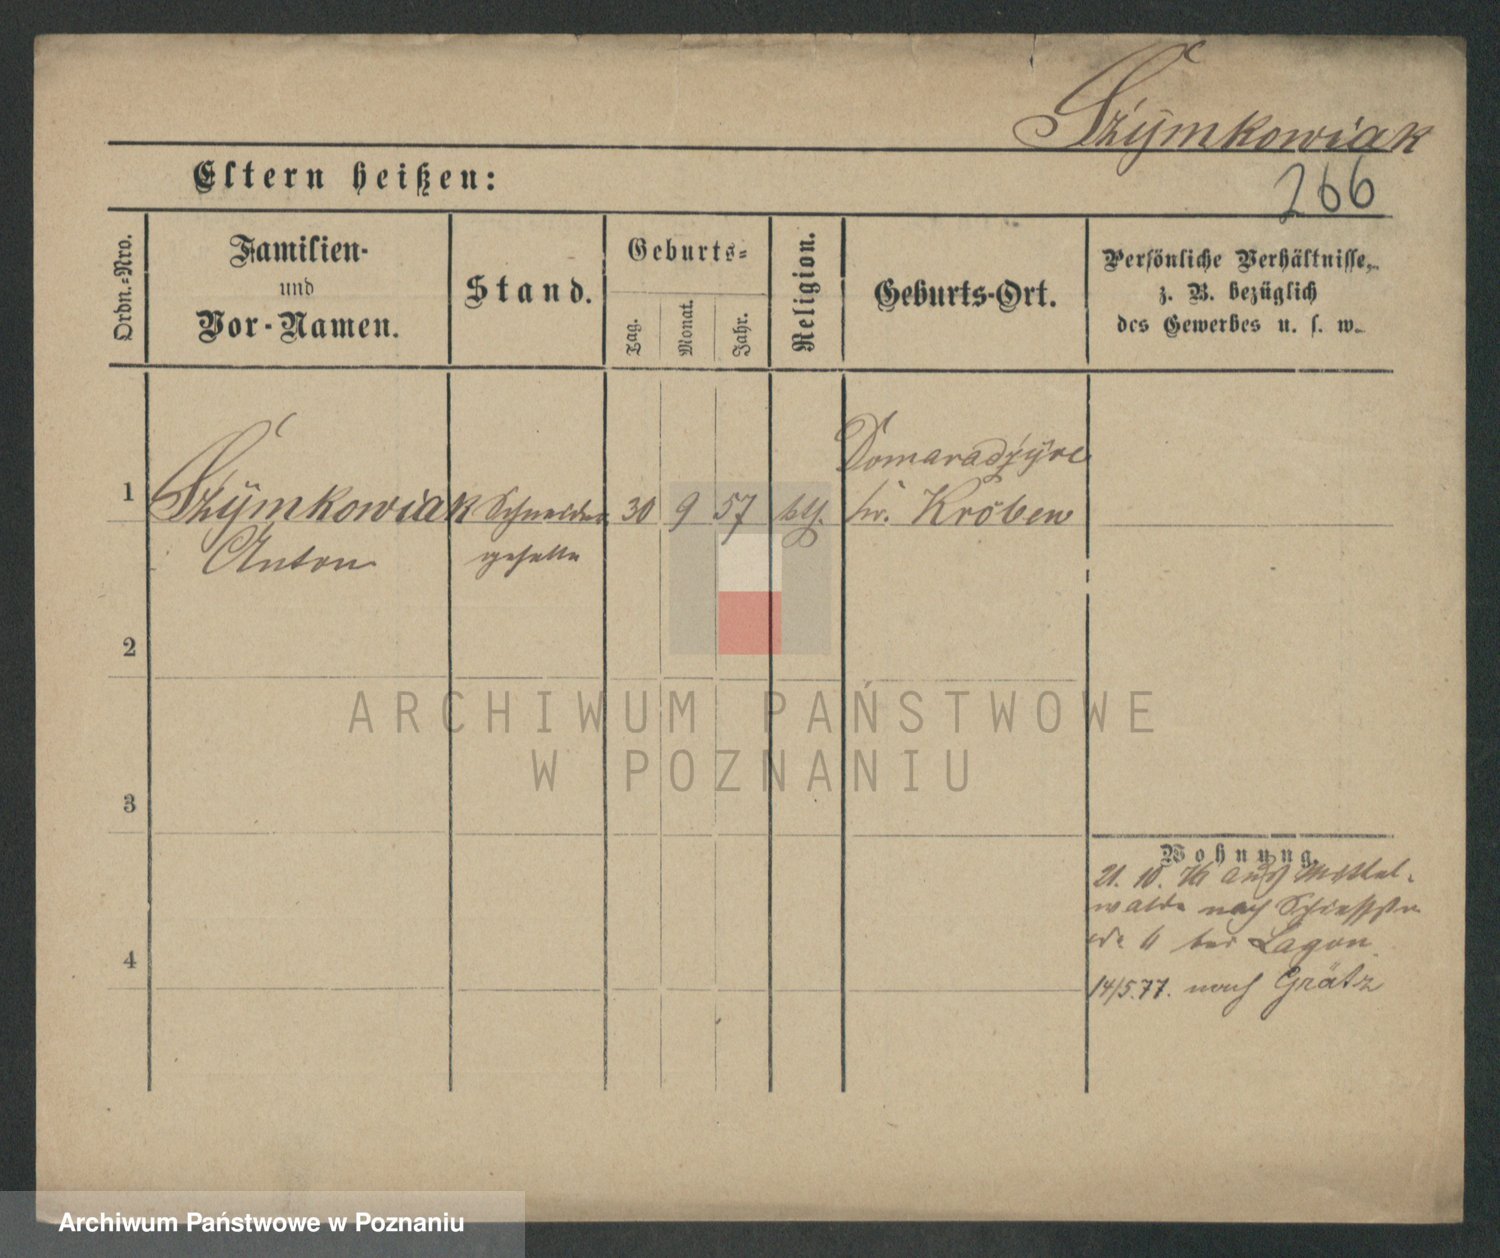 Szÿmkowiak
266
Eltern heißen:
Ordn.-Nro.
Familien-
und
Vor-Namen.
Stand.
Geburts-
Tag.
Monat.
Jahr.
Religion.
Geburts-Ort.
Persönliche Verhältnisse,
z. B. bezüglich
des Gewerbes u. s. w.
1
Szÿmkowiak
Anton
Schneider
geselle
30
9
57
kth.
Domaradzÿce
Kr. Kröben
2
3
4
Wohnung.
21. 10. 76 aus Mittel-
walde nach
bei
14/5.77. nach Grätz
ARCHIWUM PAŃSTWOWE
W POZNANIU
Archiwum Państwowe w Poznaniu